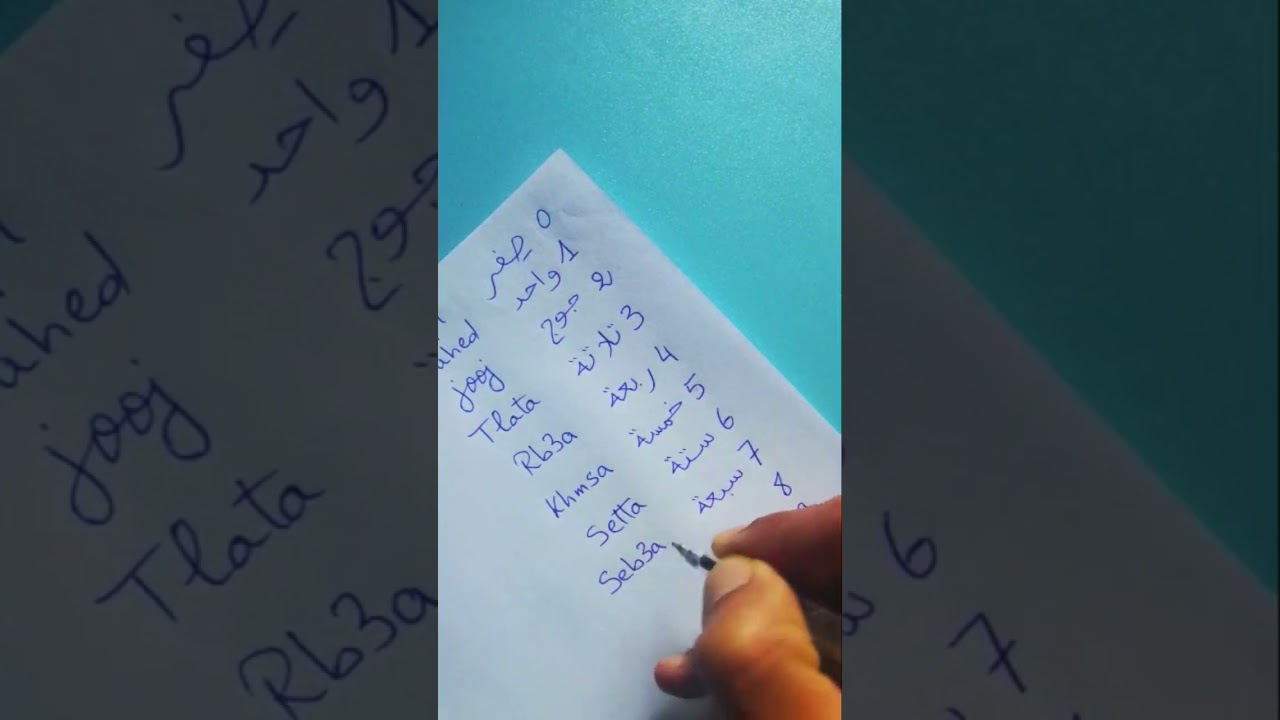 صفر 0
ahed واحد 1
jooj جوج 2
Tlata تلاتة 3
Rb3a ربعة 4
Khmsa خمسة 5
Setta ستة 6
Seb3a سبعة 7
8